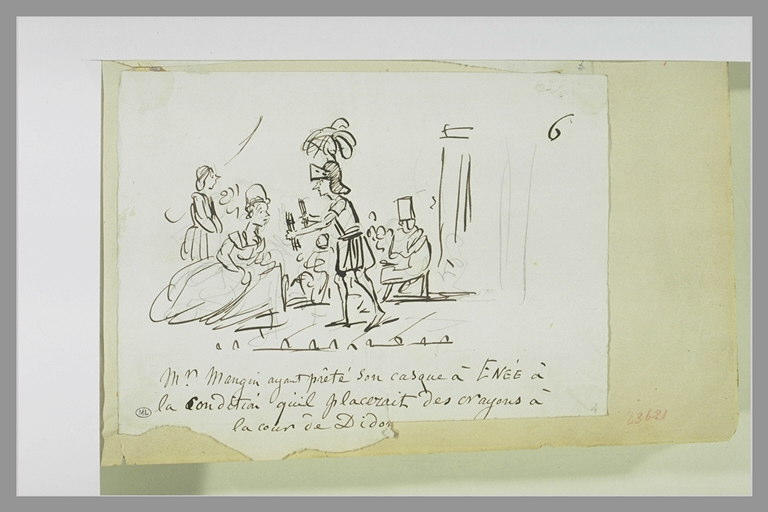 6
Mr. Mangin ayant prêté son casque à ENÉE à
la Condition qu'il placerait des crayons à
la cour de Didon
ML
23621